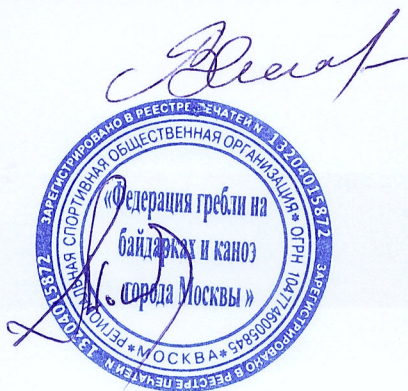 ЗАРЕГИСТРИРОВАНО В РЕЕСТРЕ ПЕЧАТЕЙ № 13204015872 ЗАРЕГИСТРИРОВАНО В РЕЕСТРЕ ПЕЧАТЕЙ № 13204015872
РЕГИОНАЛЬНАЯ СПОРТИВНАЯ ОБЩЕСТВЕННАЯ ОРГАНИЗАЦИЯ * ОГРН 1047746005845
* МОСКВА *
«Федерация гребли на
байдарках и каноэ
города Москвы »